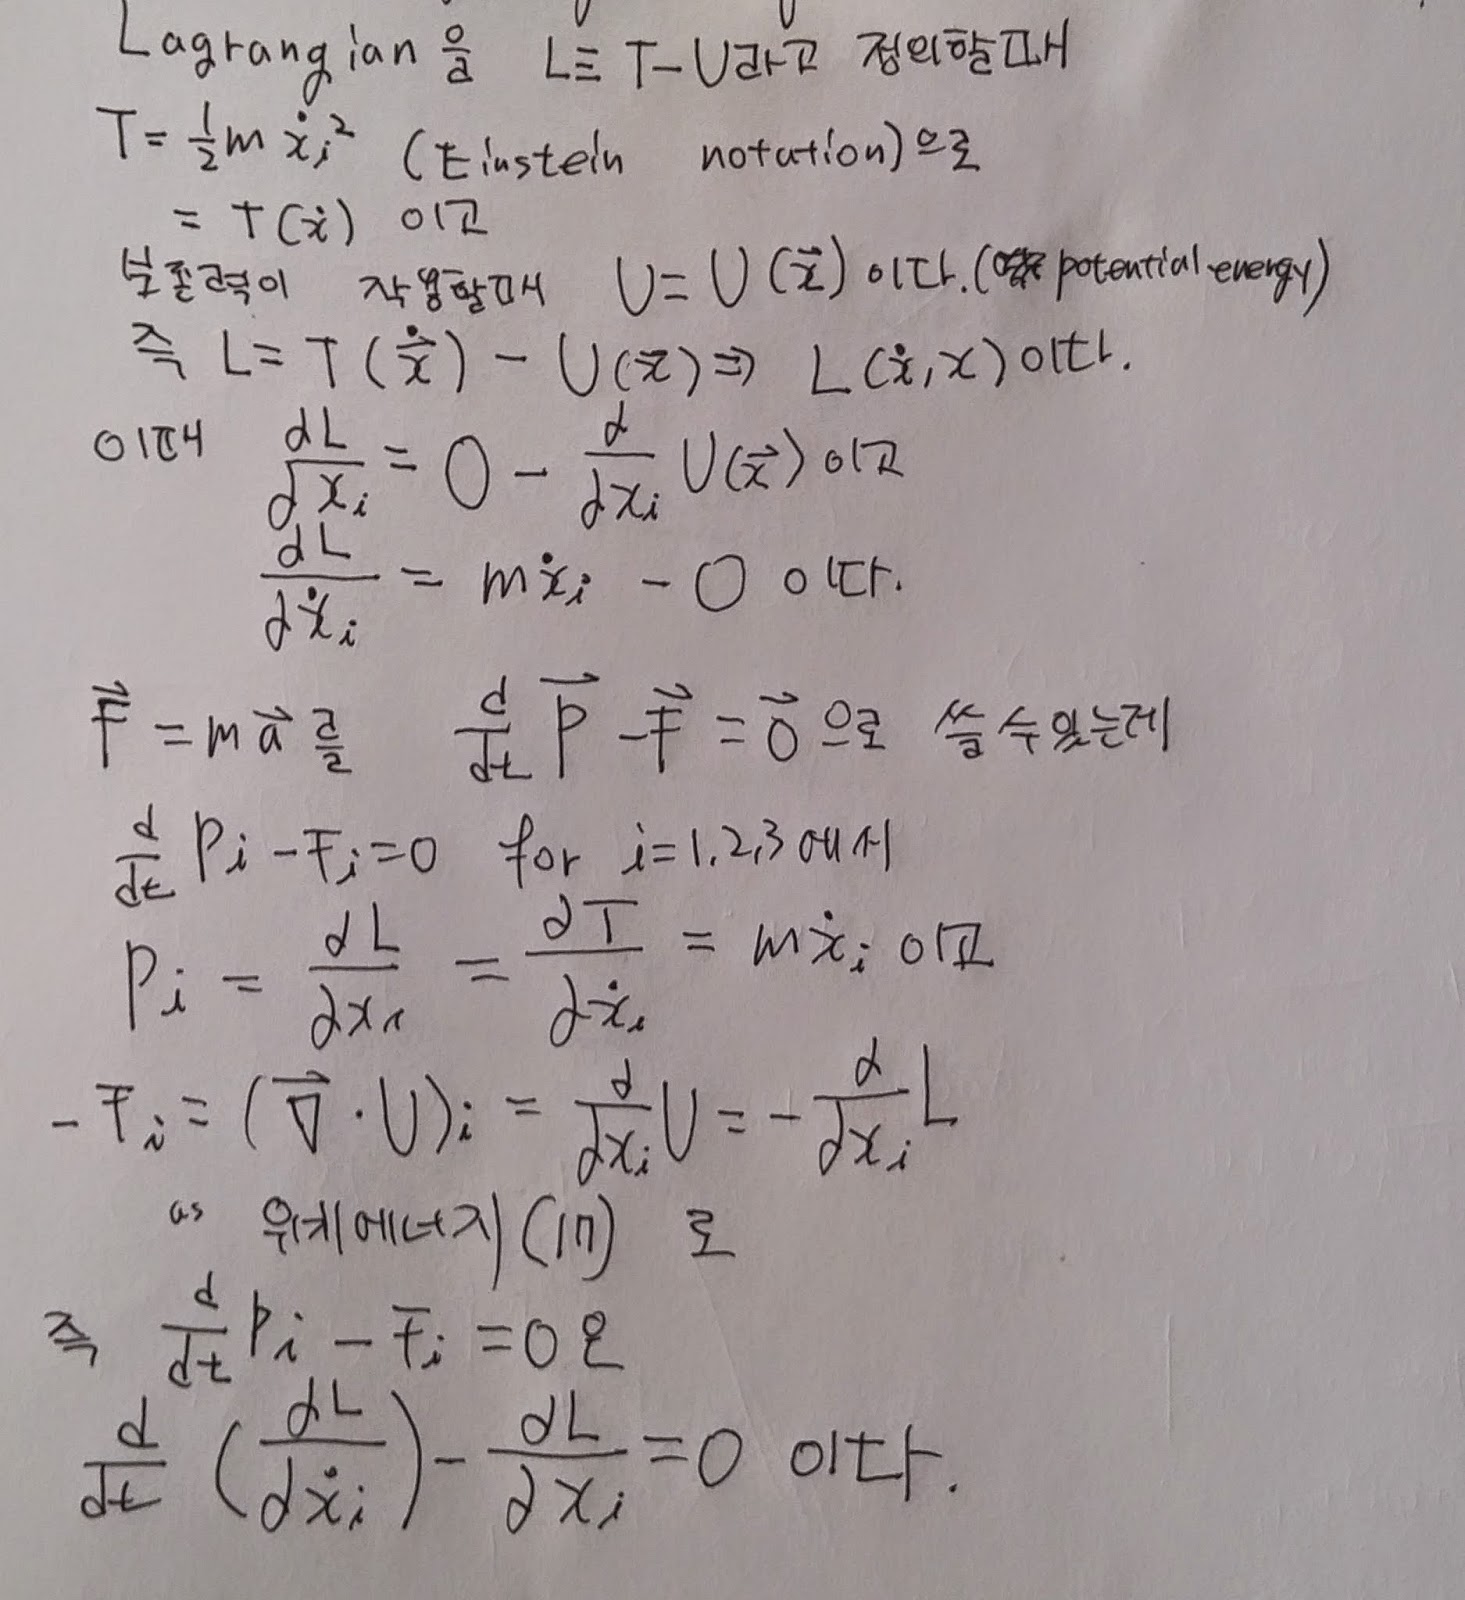 Lagrangian을 L≡T-U라고 정의할때
T = 1/2 m ẋᵢ² (Einstein notation)으로
= T(ẋ) 이고
보존력이 작용할때 U = U(x⃗) 이다. (potential energy)
즉 L = T(ẋ⃗) - U(x⃗) ⇒ L(ẋ, x) 이다.
이때 ∂L/∂xᵢ = 0 - ∂/∂xᵢ U(x⃗) 이고
∂L/∂ẋᵢ = mẋᵢ - 0 이다.
F⃗ = ma⃗ 를 d/dt P⃗ - F⃗ = 0⃗ 으로 쓸 수 있는데
d/dt Pᵢ - Fᵢ = 0 for i=1,2,3 에서
Pᵢ = ∂L/∂xᵢ = ∂T/∂ẋᵢ = mẋᵢ 이고
-Fᵢ = (∇⃗·U)ᵢ = ∂/∂xᵢ U = -∂/∂xᵢ L
as 위치에너지(17) 로
즉 d/dt Pᵢ - Fᵢ = 0 은
d/dt (∂L/∂ẋᵢ) - ∂L/∂xᵢ = 0 이다.